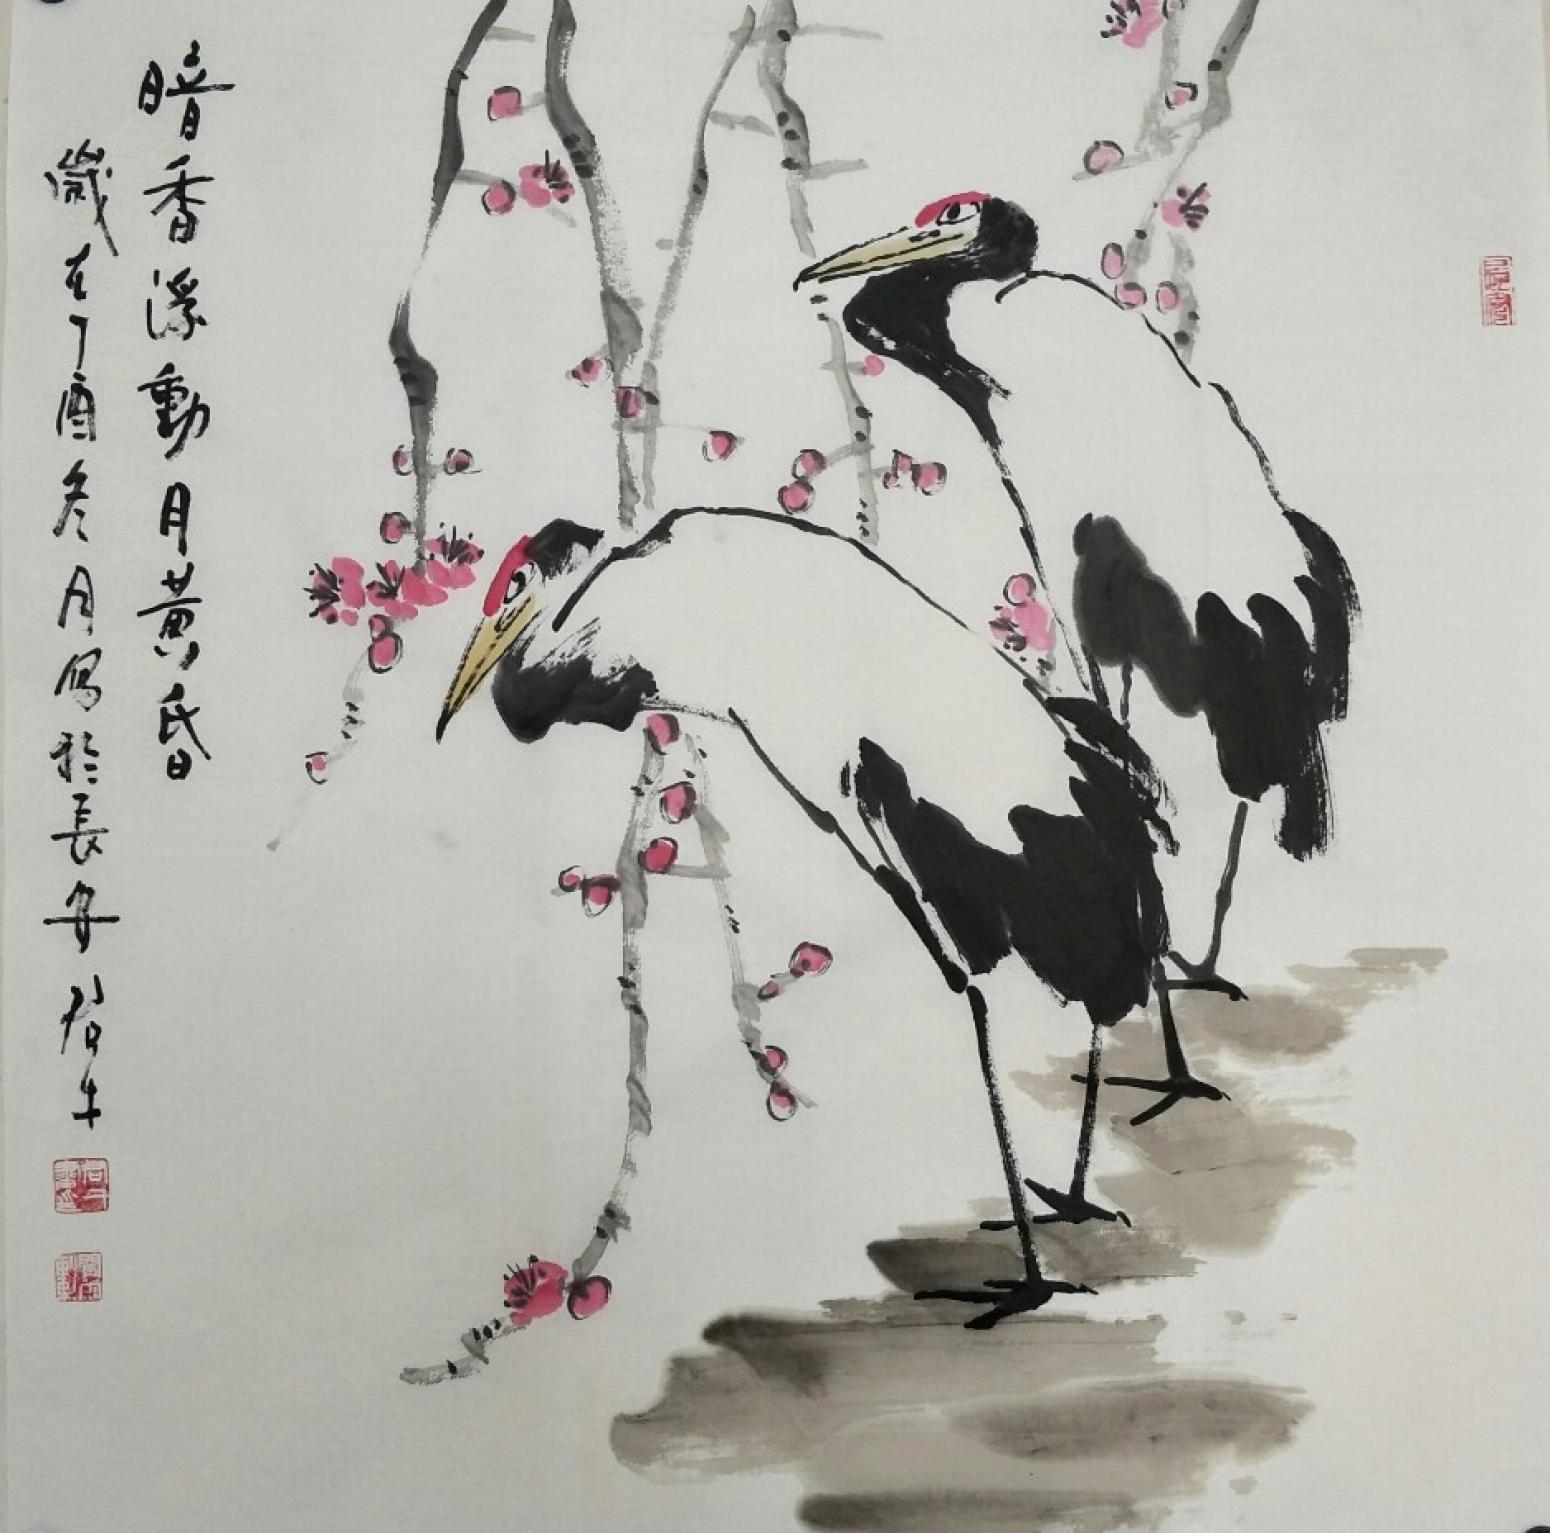 暗香浮動月黃昏
歲在丁酉冬月寫於長安君牛